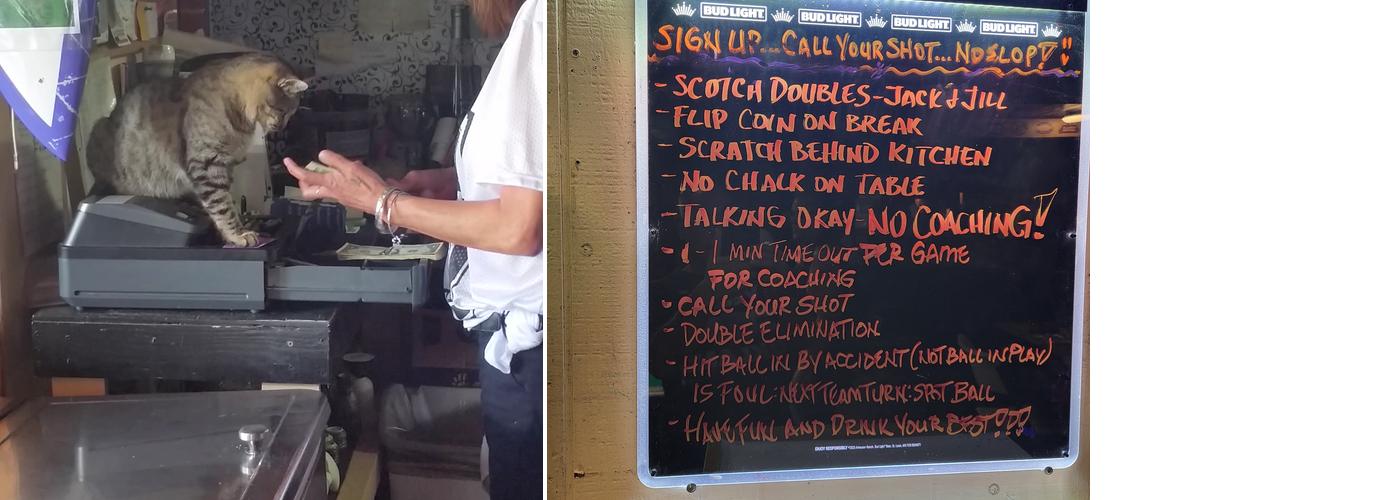 BUD LIGHT BUD LIGHT BUD LIGHT BUD LIGHT
SIGN UP... CALL YOUR SHOT... NO SLOP!!
- SCOTCH DOUBLES - JACK & JILL
- FLIP COIN ON BREAK
- SCRATCH BEHIND KITCHEN
- NO CHALK ON TABLE
- TALKING OKAY - NO COACHING!
- 1 - 1 MIN TIME OUT PER GAME
FOR COACHING
- CALL YOUR SHOT
- DOUBLE ELIMINATION
- HIT BALL IN BY ACCIDENT (NOT BALL IN PLAY)
IS FOUL: NEXT TEAM TURN: SPOT BALL
- HAVE FUN AND DRINK YOUR BEST!!!
ENJOY RESPONSIBLY